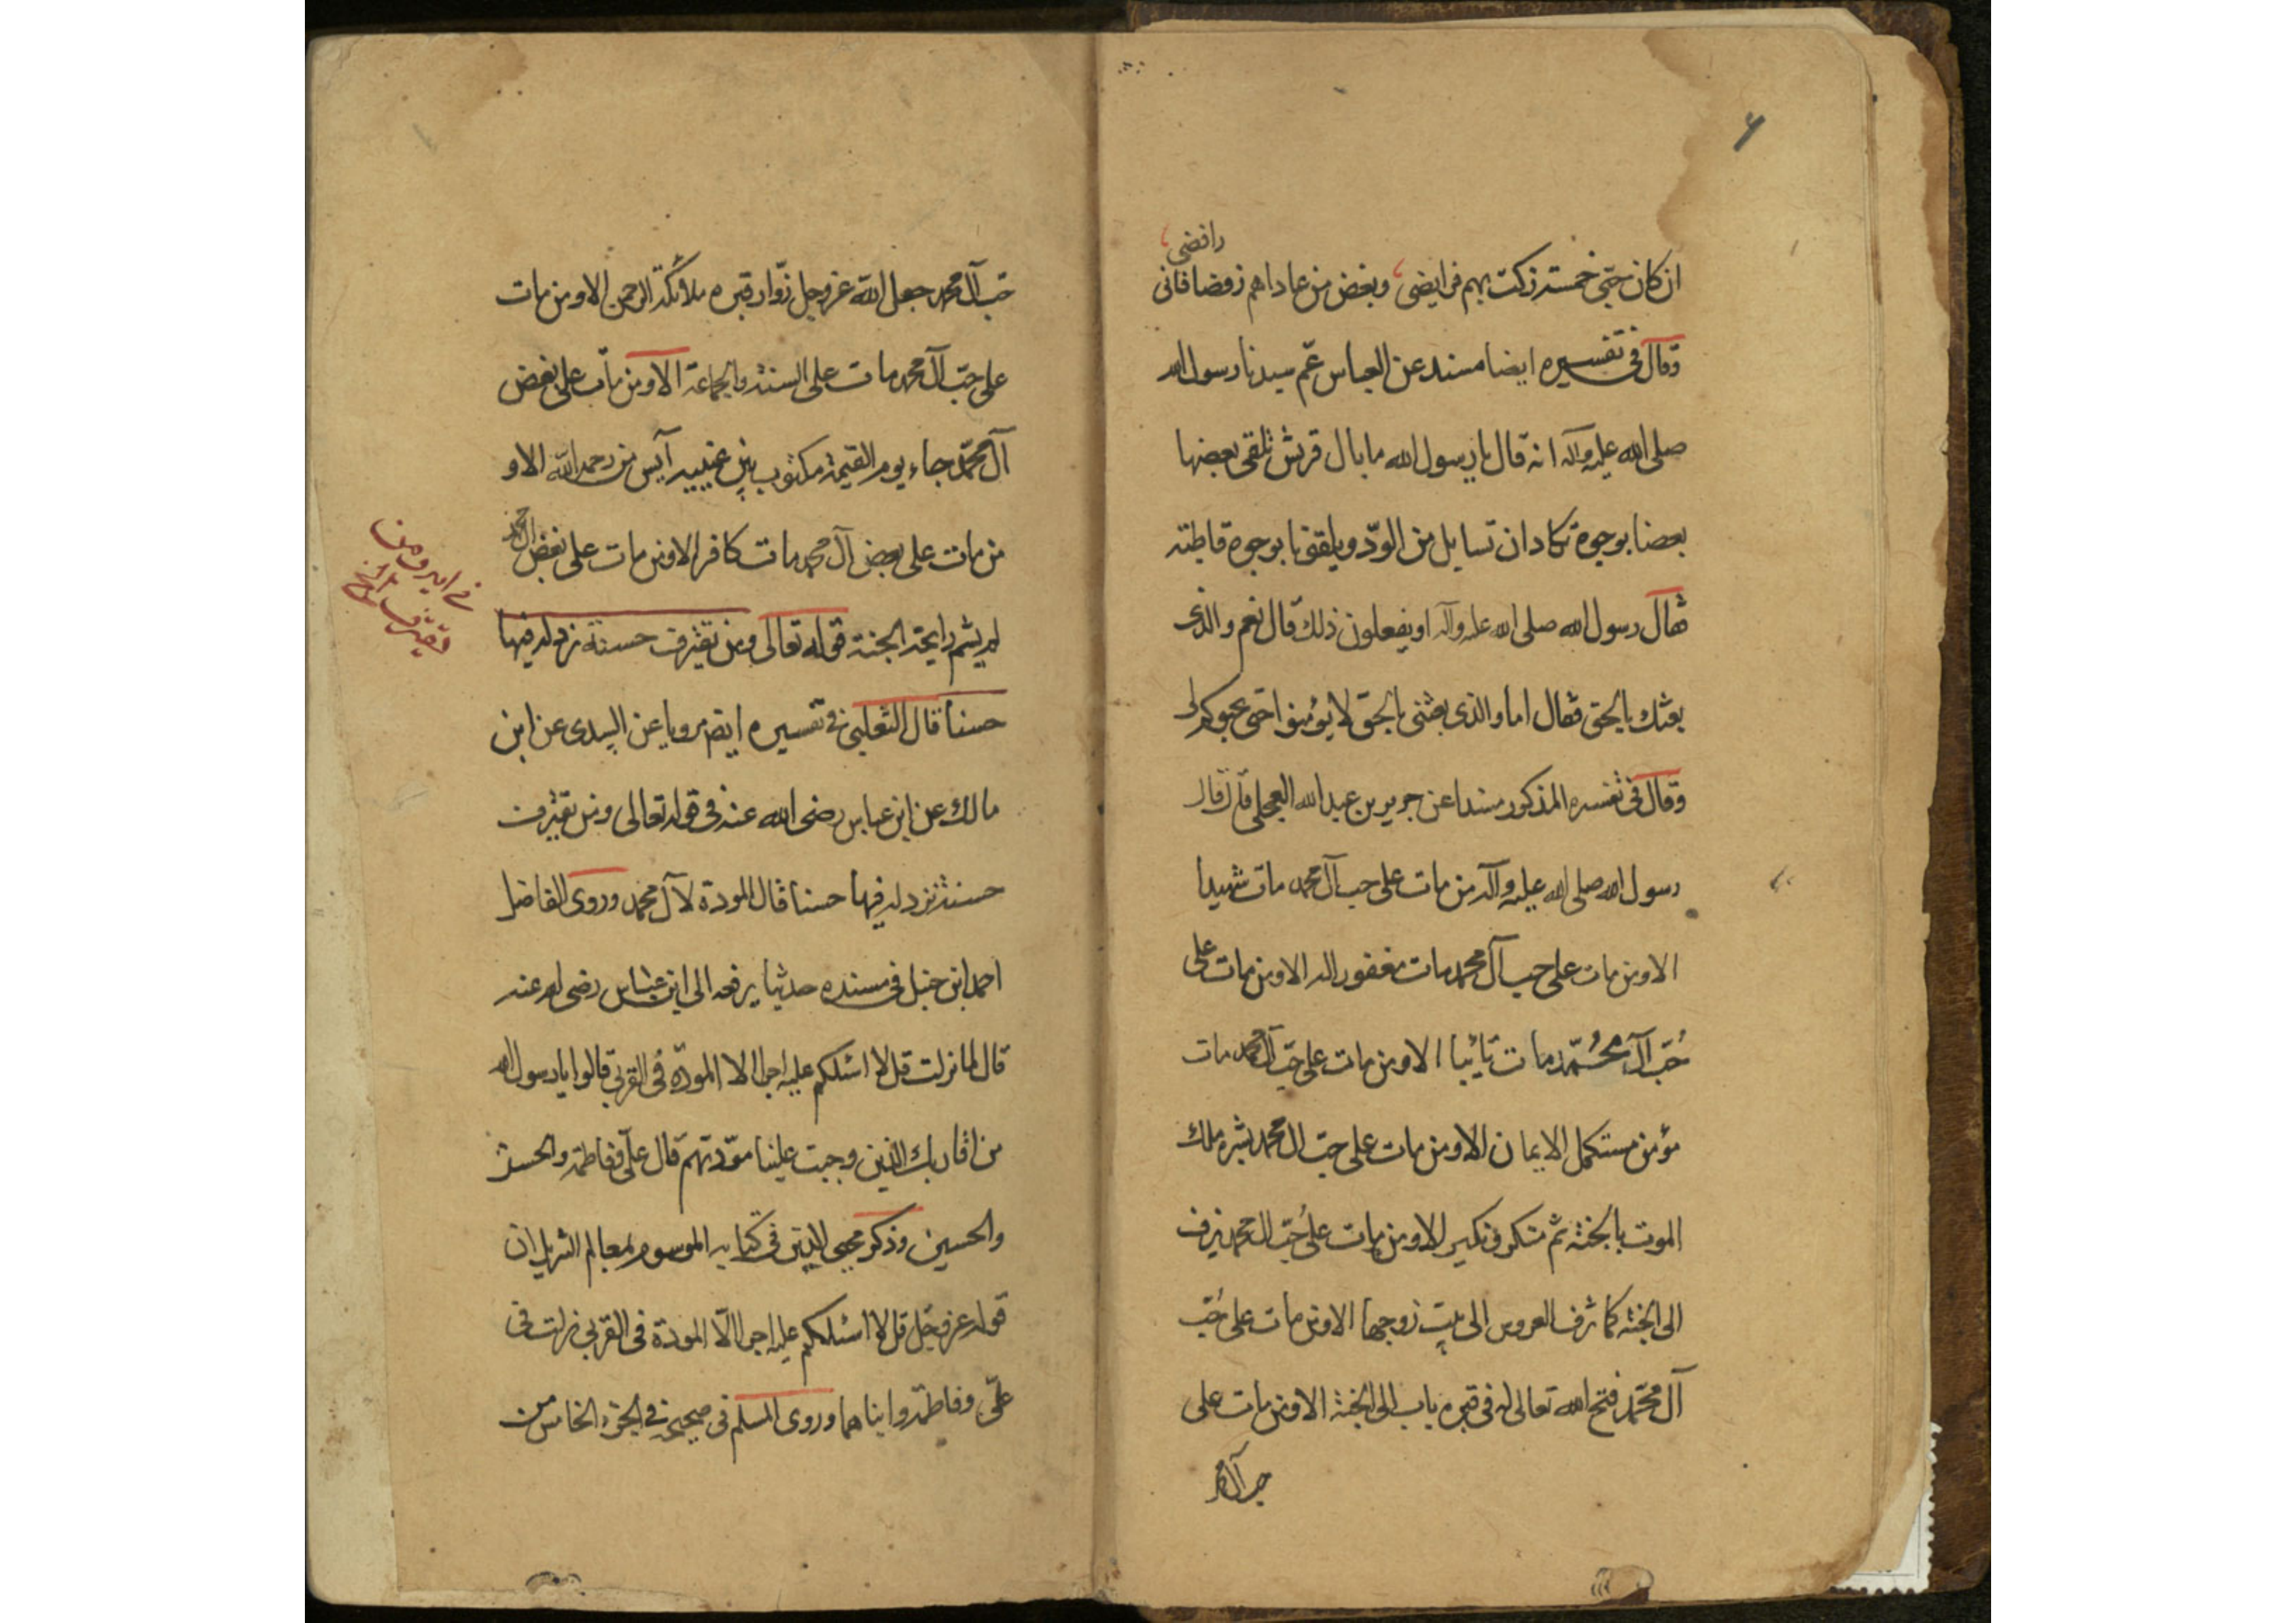 ۶
رافضی
ان كان حبي خمسة زكت بهم فرايضی وبغض من عاداهم رفضا فانی
وقال فی تفسيره ايضا مسند عن العباس عم سيدنا رسول الله
صلی الله عليه وآله انه قال يا رسول الله ما بال قريش تلقی بعضها
بعضا بوجوه تكاد ان تسايل من الودّ ويلقونا بوجوه قاطبة
فقال رسول الله صلی الله عليه وآله اويفعلون ذلك قال نعم والذی
بعثك بالحق فقال اما والذی بعثنی بالحق لا يؤمنوا حتی يحبوكم لی
وقال فی تفسيره المذكور مسندا عن جرير بن عبد الله البجلی قال قال
رسول الله صلی الله عليه وآله من مات علی حب آل محمد مات شهيدا
الا ومن مات علی حب آل محمد مات مغفورا له الا ومن مات علی
حُبّ آل مُحمّد مات تائبا الا ومن مات علی حبّ آل محمد مات
مؤمن مستكمل الايمان الا ومن مات علی حبّ ال محمد بشره ملك
الموت بالجنة ثم منكر ونكير الا ومن مات علی حُبّ ال محمد يزف
الی الجنة كما تزف العروس الی بيت زوجها الا ومن مات علی حُبّ
آل محمّد فتح الله تعالی له فی قبره باب الی الجنة الا ومن مات علی
حب آل محمد
حبّ آل محمد جعل الله عز وجل زوّار قبره ملائكة الرحمن الا ومن مات
علی حبّ آل محمد مات علی السنة والجماعة الا ومن مات علی بغض
آل محمّد جاء يوم القيمة مكتوب بين عينيه آيس من رحمة الله الا و
من مات علی بغض آل محمد مات كافرا الا ومن مات علی بغض ال محمد
لم يشم رايحة الجنة قوله تعالی ومن يقترف حسنة نزد له فيها
حسنا قال الثعلبی فی تفسيره ايضا مرويا عن السدی عن ابن
مالك عن ابن عباس رضی الله عنه فی قوله تعالی ومن يقترف
حسنة نزد له فيها حسنا قال المودة لآل محمد وروی الفاضل
احمد ابن حنبل فی مسنده حديثا يرفعه الی ابن عبّاس رضی الله عنه
قال لما نزلت قل لا اسئلكم عليه اجرا الا المودّة فی القربی قالوا يا رسول الله
من اقاربك الذين وجبت علينا مودّتهم قال علی وفاطمة والحسن
والحسين وذكر محيی الدين فی كتابه الموسوم بمعالم التنزيل ان
قوله عز وجل قل لا اسئلكم عليه اجرا الّا المودة فی القربی نزلت فی
علی وفاطمة وابناهما وروی المسلم فی صحيحه فی الجزء الخامس من
فی اية ومن
يقترف